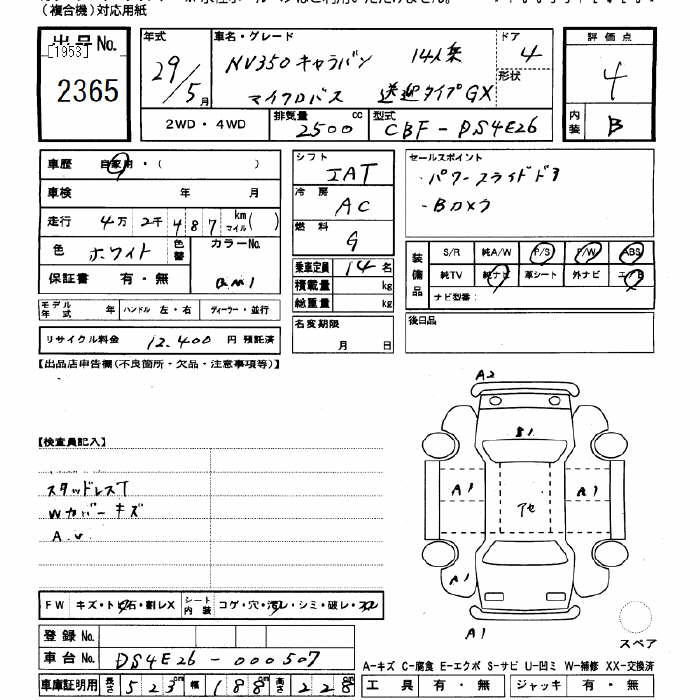 (複合機)対応用紙
出品No.
[1953]
2365
年式
29/5月
車名・グレード
NV350キャラバン 14人乗
マイクロバス 送迎タイプGX
ドア
4
形状
評価点
4
内装
B
2WD・4WD
排気量
2500cc
型式
CBF-DS4E26
車歴 自家用・( )
車検 年 月
走行 4万2千487 km マイル( )
色 ホワイト 色替
カラーNo.
保証書 有・無
モデル年式 年 ハンドル 左・右 ディーラー・並行
リサイクル料金 12.400 円 預託済
シフト
IAT
冷房
AC
燃料
G
乗車定員 14名
積載量 kg
総重量 kg
名変期限
月 日
セールスポイント
・パワースライドドア
・Bカメラ
装備品
S/R 純A/W P/S P/W ABS
純TV 純ナビ 革シート 外ナビ エアB
ナビ型番:
後日品
【出品店申告欄(不良箇所・欠品・注意事項等)】
【検査員記入】
スタッドレスT
Wカバーキズ
A.U
FW キズ・トビ石・割レX
シート内装 コゲ・穴・汚レ・シミ・破レ・スレ
登録No.
車台No. DS4E26-000507
車庫証明用 長さ 523cm 幅 188cm 高さ 228cm
A2
B1
A1
A1
アセ
A1
A1
スペア
A-キズ C-腐食 E-エクボ S-サビ U-凹ミ W-補修 XX-交換済
工具 有・無 ジャッキ 有・無